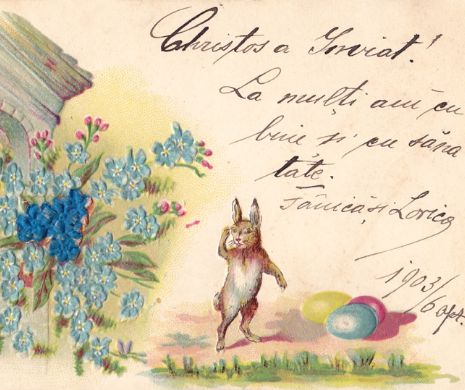 Christos a Inviat!
La mulți ani cu
bine și cu sănă
tate.
Tănică și Lorica
1903/6 apr.